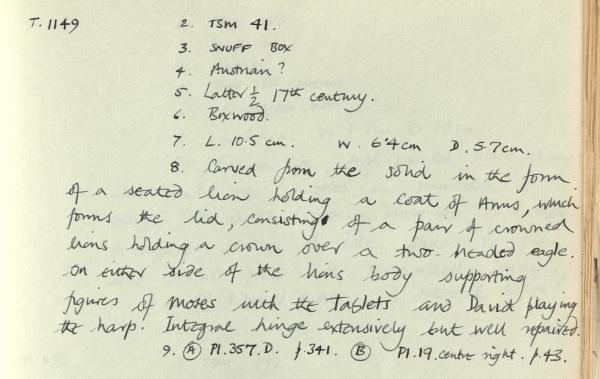 T.1149 2. TSM 41.
3. SNUFF BOX
4. Austrian?
5. Latter ½ 17th century.
6. Boxwood.
7. L. 10.5 cm. W. 6.4 cm D. 5.7 cm.
8. Carved from the solid in the form
of a seated lion holding a coat of Arms, which
forms the lid, consisting of a pair of crowned
lions holding a crown over a two-headed eagle.
On either side of the lions body supporting
figures of Moses with the Tablets and David playing
the harp. Integral hinge extensively but well repaired.
9. Ⓐ Pl.357.D. p.341. Ⓑ Pl.19.centre right. p.43.